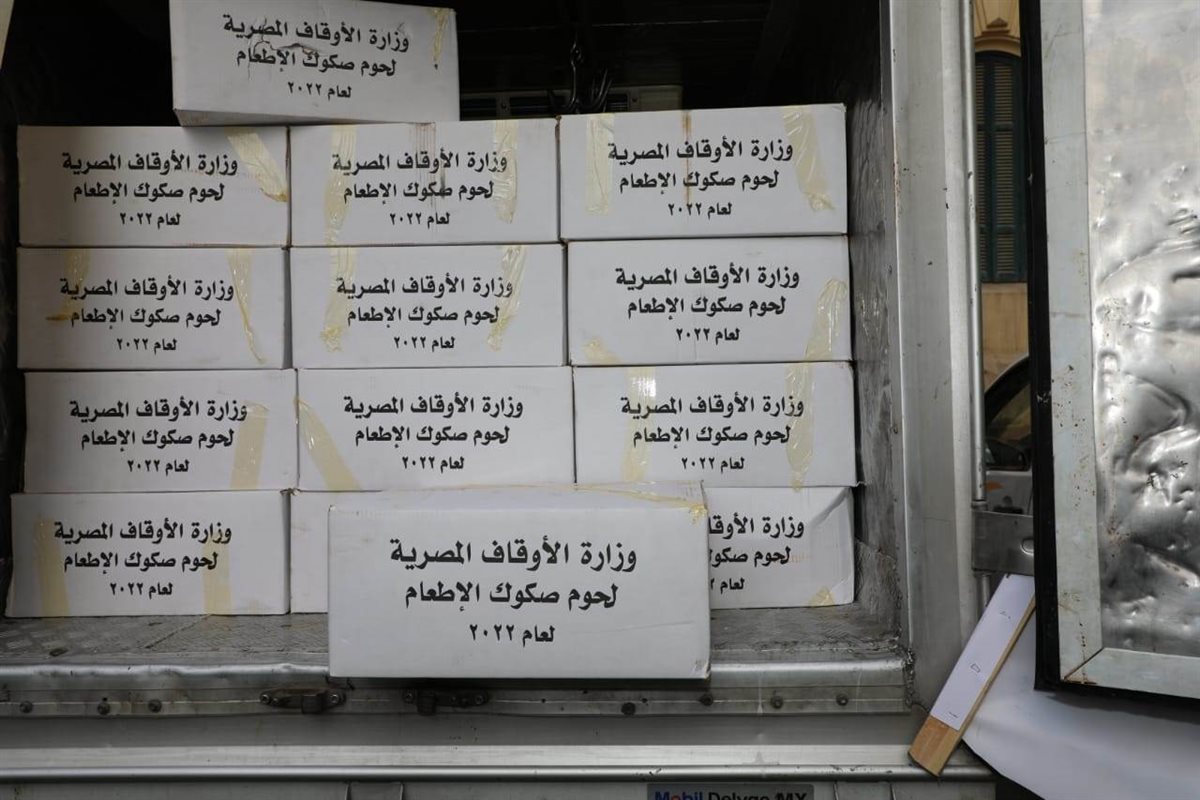 وزارة الأوقاف المصرية
لحوم صكوك الإطعام
لعام ٢٠٢٢
وزارة الأوقاف المصرية
لحوم صكوك الإطعام
لعام ٢٠٢٢
وزارة الأوقاف المصرية
لحوم صكوك الإطعام
لعام ٢٠٢٢
وزارة الأوقاف المصرية
لحوم صكوك الإطعام
لعام ٢٠٢٢
وزارة الأوقاف المصرية
لحوم صكوك الإطعام
لعام ٢٠٢٢
وزارة الأوقاف المصرية
لحوم صكوك الإطعام
لعام ٢٠٢٢
وزارة الأوقاف المصرية
لحوم صكوك الإطعام
لعام ٢٠٢٢
وزارة الأوقاف المصرية
لحوم صكوك الإطعام
لعام ٢٠٢٢
وزارة الأوقاف المصرية
لحوم صكوك الإطعام
لعام ٢٠٢٢
وزارة الأوقاف المصرية
لحوم صكوك الإطعام
لعام ٢٠٢٢
وزارة الأوقاف
لحوم صكوك
لعام
وزارة الأوقاف المصرية
لحوم صكوك الإطعام
لعام ٢٠٢٢
وزارة الأوقاف المصرية
لحوم صكوك الإطعام
لعام ٢٠٢٢
Mobil Delvac MX